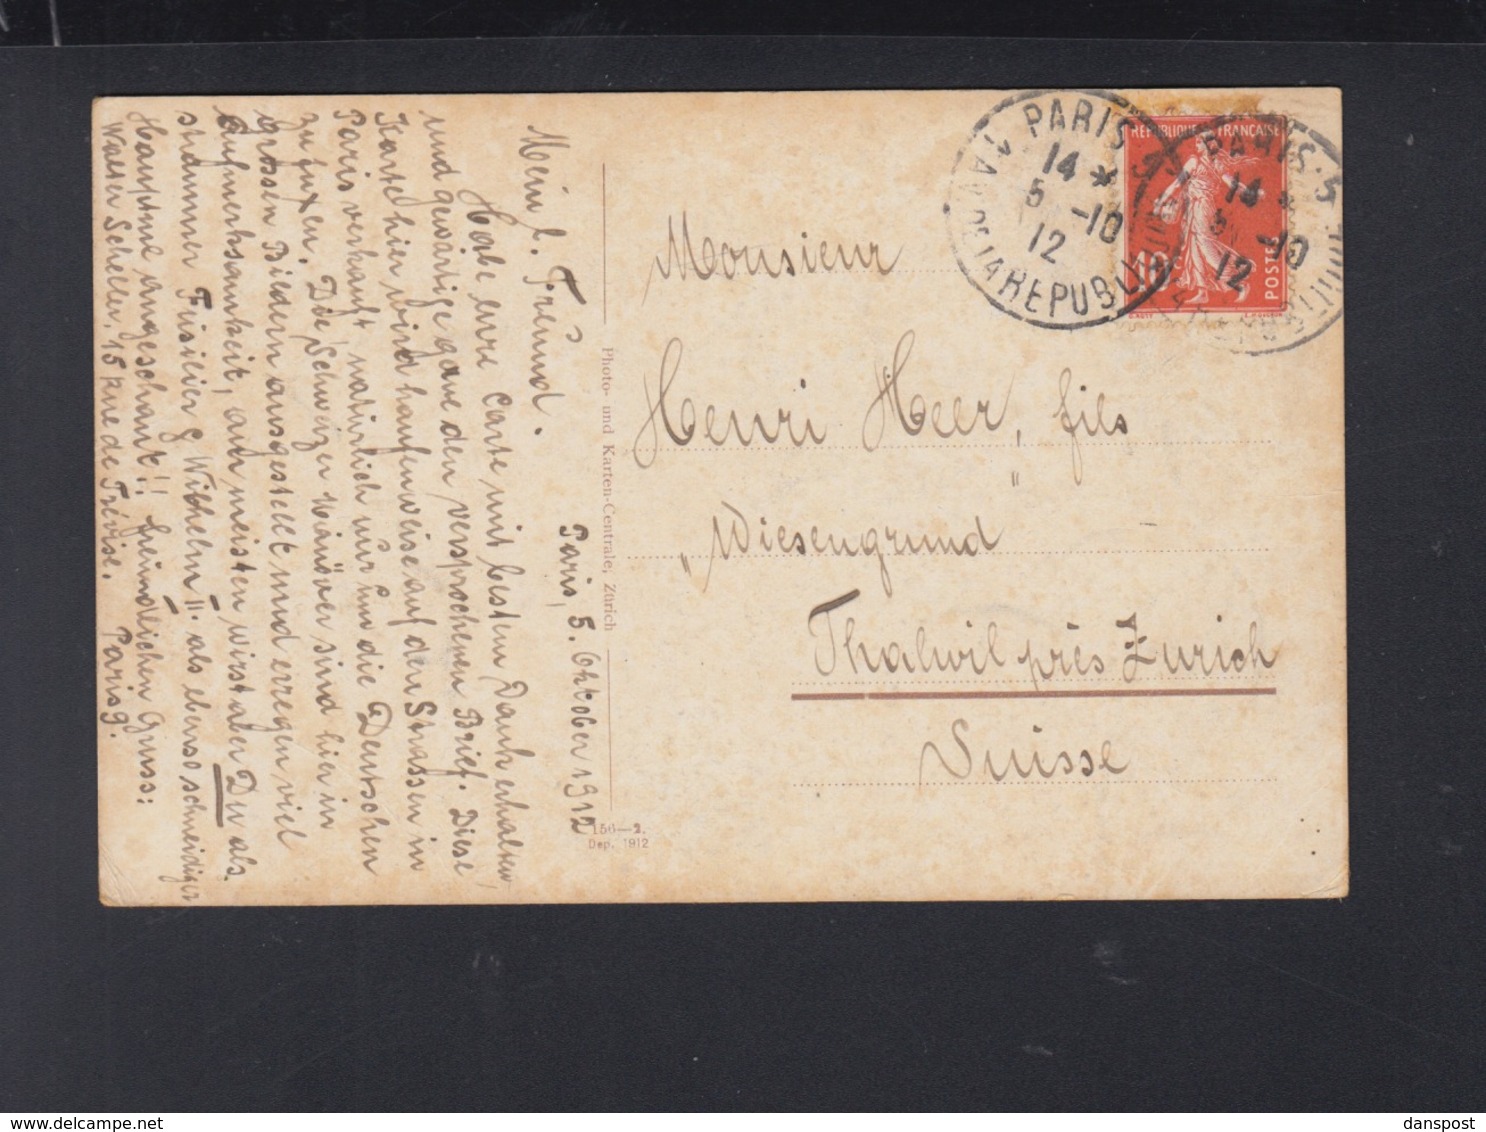 Mein l. Freund.
Habe eure Carte mit bestem Dank erhalten,
und gewärtige gane den versprochenen Brief. Diese
Karte hier wird haufenweise auf den Strassen in
Paris verkauft natürlich nur um die Deutschen
zu fuxen. Die Schweizer Manöver sind hier in
grossen Bildern ausgestellt und erregen viel
Aufmerksamkeit, am meisten wirst aber Du als
strammer Füsilier & Wilhelm II. als ebenso schneidiger
Hauptme angeschaut!! freundlichen Gruss:
Walter Scheller, 15 Rue de Trévise. Paris 9.
Paris, 5. Oktober 1912
Photo- und Karten-Centrale, Zürich
156—2.
Dep. 1912
PARIS
14 *
5 -10
12
REPUBL
PARIS
14 *
5 -10
12
REPUBLIQUE FRANÇAISE
10
POSTES
Monsieur
Henri Heer, fils
„Wiesengrund"
Thalwil près Zurich
Suisse
danspost
delcampe.net